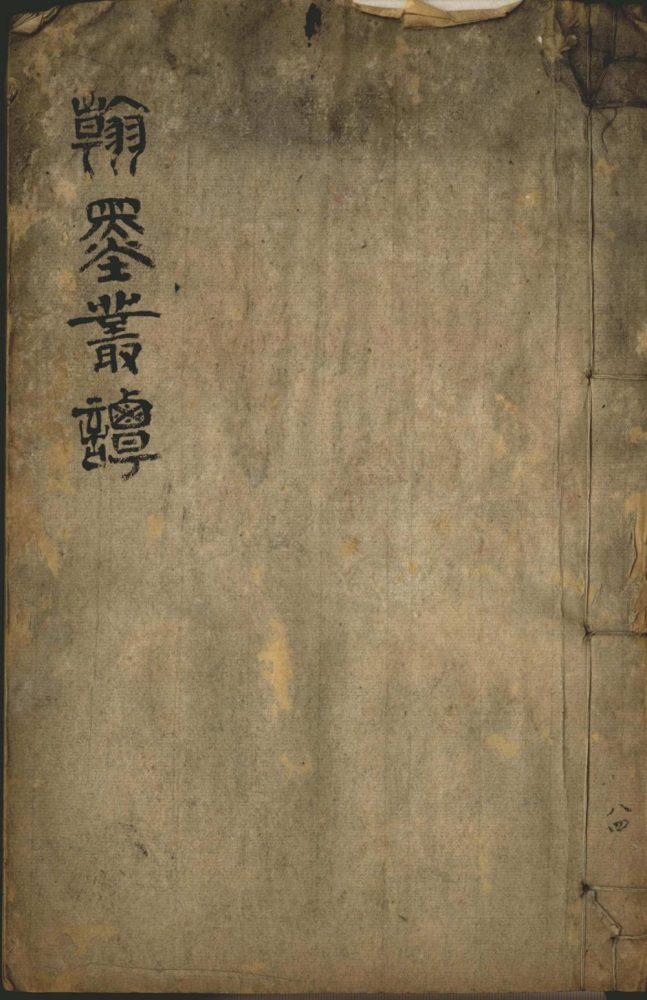 翰墨叢譚
八四